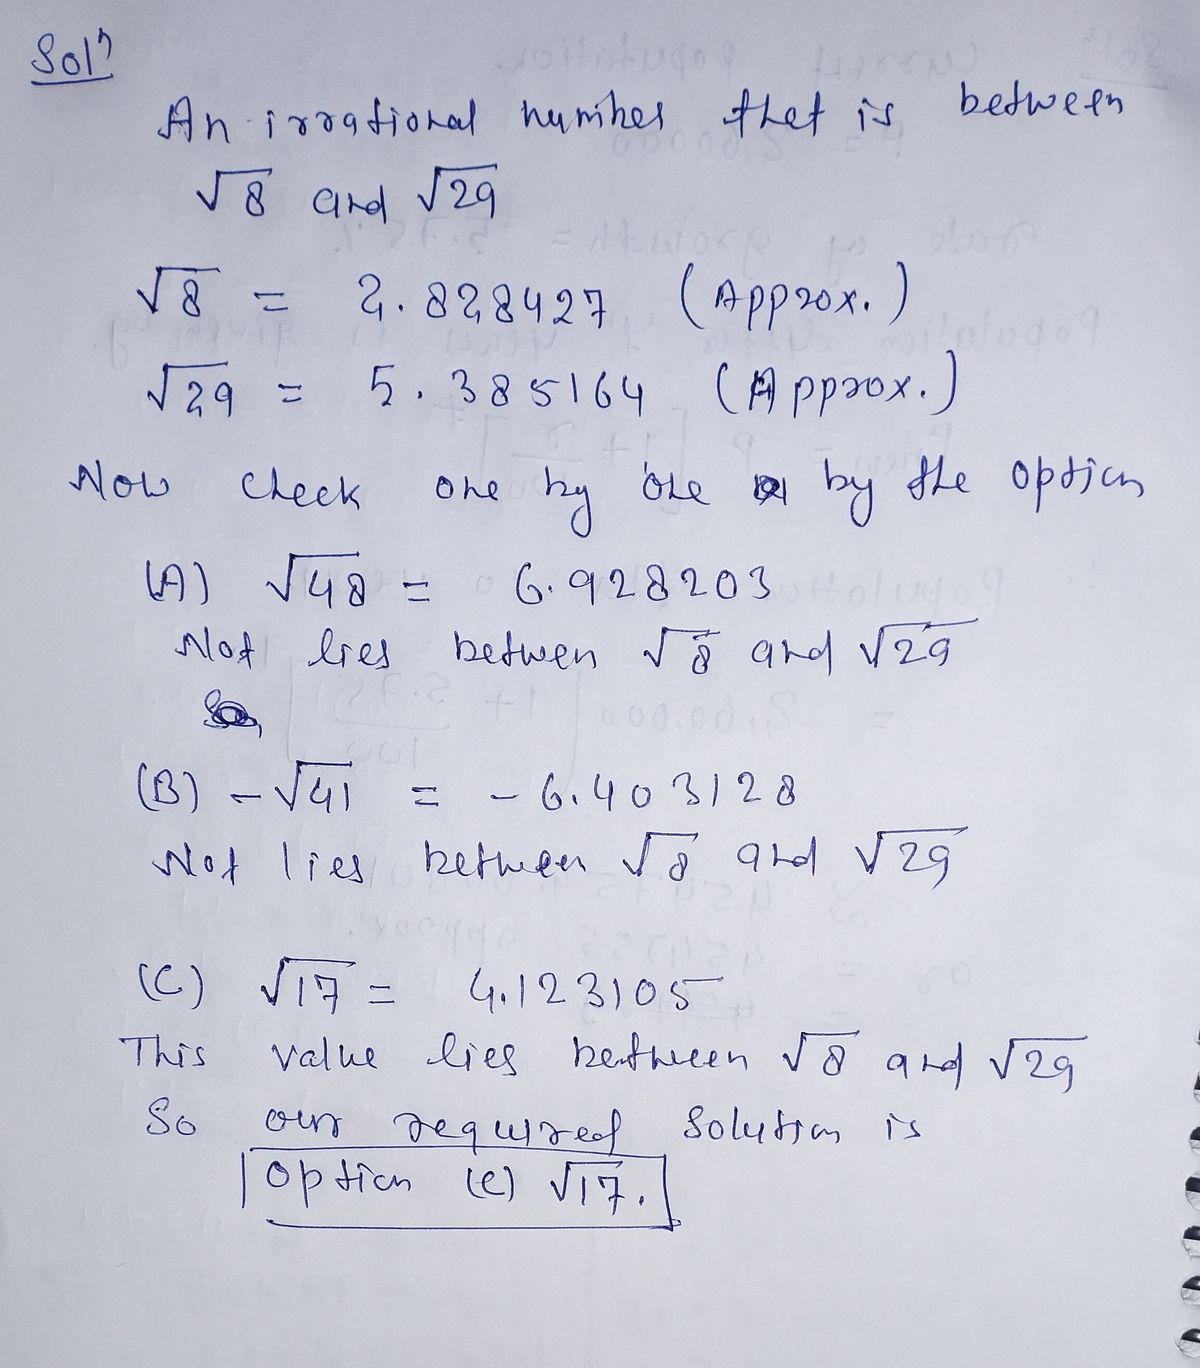 Solⁿ
An irrational number that is between
√8 and √29
√8 = 2.828427 (Approx.)
√29 = 5.385164 (Approx.)
Now check one by one by the option
(A) √48 = 6.928203
Not lies betwen √8 and √29
(B) -√41 = -6.403128
Not lies between √8 and √29
(C) √17 = 4.123105
This value lies between √8 and √29
So our required solution is
option (C) √17.